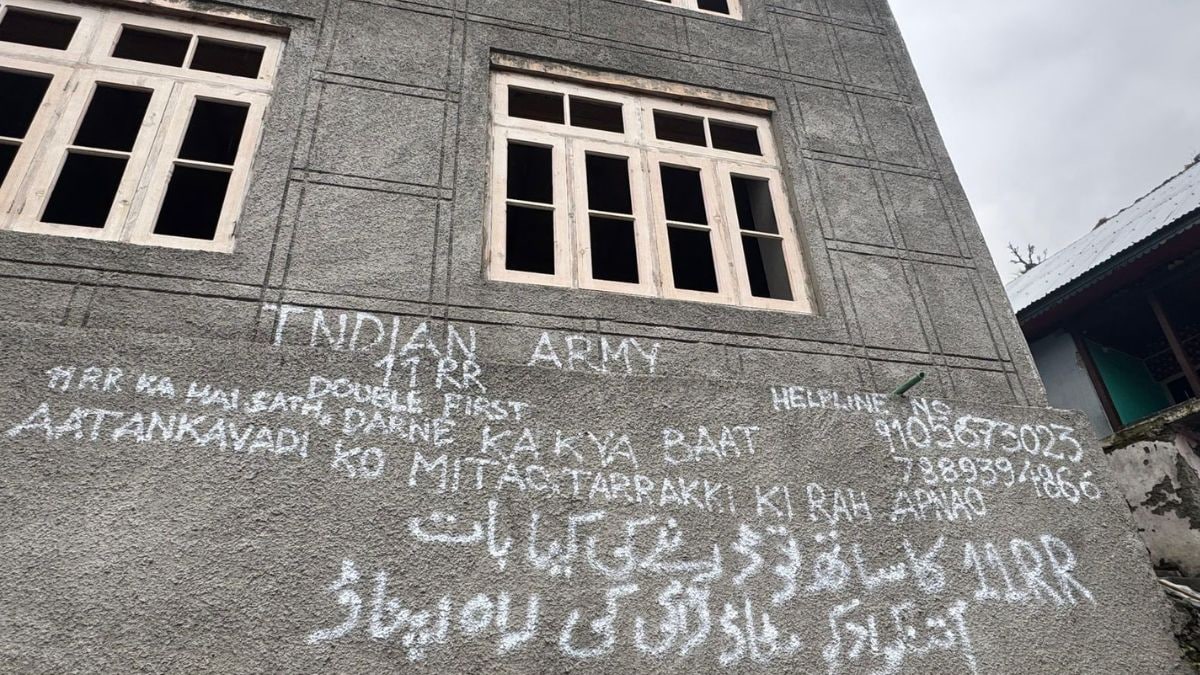 INDIAN ARMY
11 RR
DOUBLE FIRST
11 RR KA HAI SATH, DARNE KA KYA BAAT
AATANKAVADI KO MITAO, TARRAKKI KI RAH APNAO
HELPLINE NS
9105673025
7889394866
11RR کا ساتھ تو ڈرنے کی کیا بات
کی راہ اپناؤ